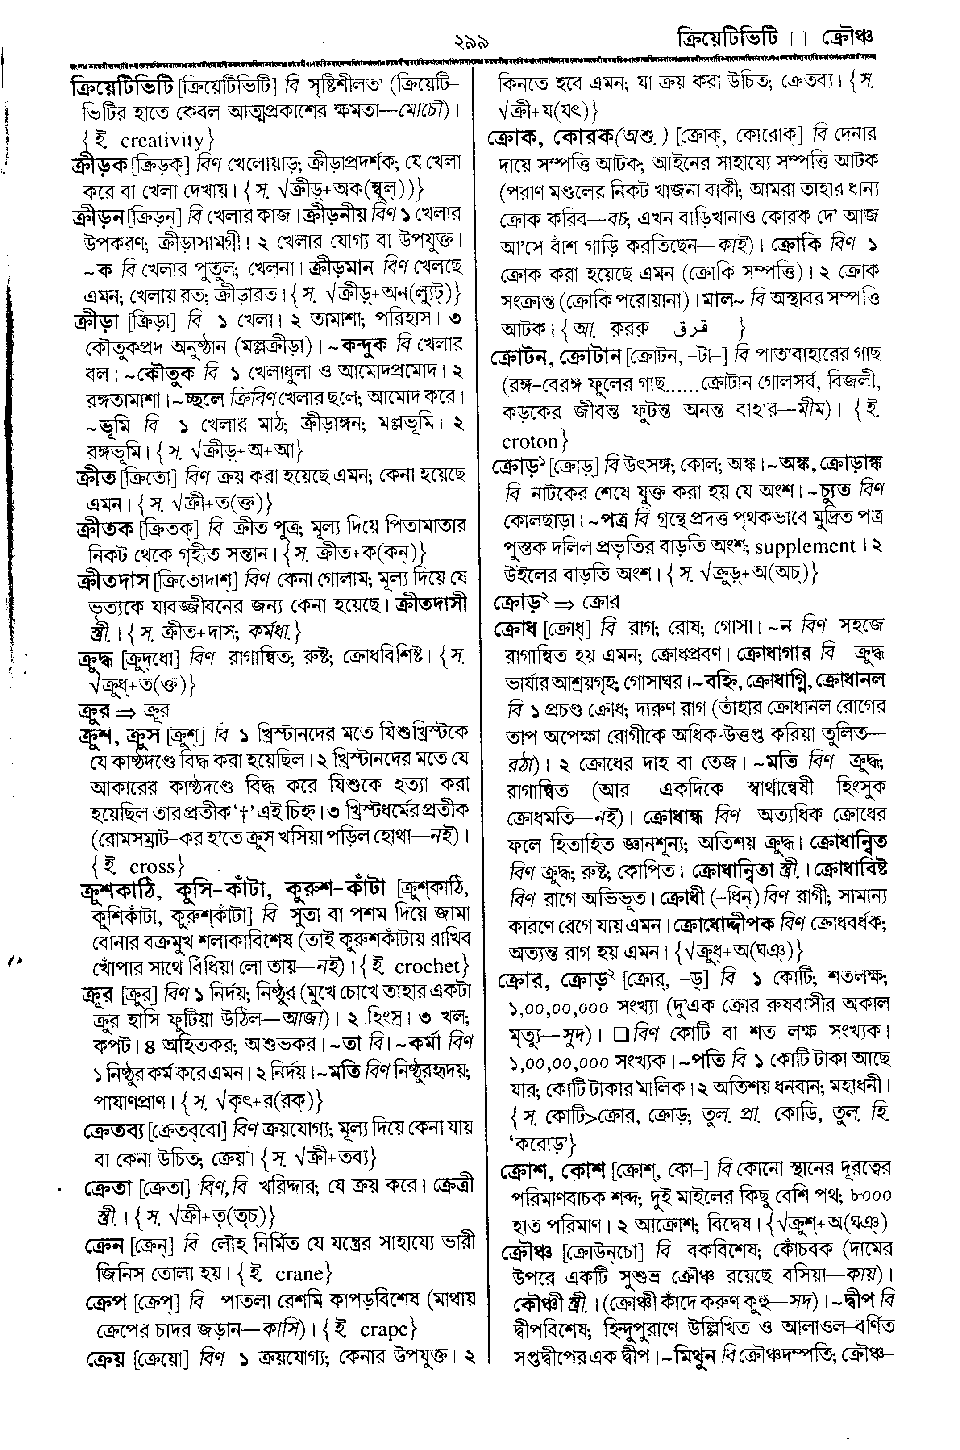 ২৯৯
ক্রিয়েটিভিটি ।। ক্রৌঞ্চ
ক্রিয়েটিভিটি [ক্রিয়েটিভিটি] বি সৃষ্টিশীলতা (ক্রিয়েটি-
ভিটির হাতে কেবল আত্মপ্রকাশের ক্ষমতা—মোচৌ)।
{ই. creativity}
ক্রীড়ক [ক্রিড়ক্] বিণ খেলোয়াড়; ক্রীড়াপ্রদর্শক; যে খেলা
করে বা খেলা দেখায়। {স. √ক্রীড়+অক(ণ্বুল্)}
ক্রীড়ন [ক্রিড়ন্] বি খেলার কাজ। ক্রীড়নীয় বিণ ১ খেলার
উপকরণ; ক্রীড়াসামগ্রী। ২ খেলার যোগ্য বা উপযুক্ত।
~ক বি খেলার পুতুল; খেলনা। ক্রীড়মান বিণ খেলছে
এমন; খেলায় রত; ক্রীড়ারত। {স. √ক্রীড়+অন(ল্যুট্)}
ক্রীড়া [ক্রিড়া] বি ১ খেলা। ২ তামাশা; পরিহাস। ৩
কৌতুকপ্রদ অনুষ্ঠান (মল্লক্রীড়া)। ~কন্দুক বি খেলার
বল। ~কৌতুক বি ১ খেলাধুলা ও আমোদপ্রমোদ। ২
রঙ্গতামাশা। ~চ্ছলে ক্রিবিণ খেলার ছলে; আমোদ করে।
~ভূমি বি ১ খেলার মাঠ; ক্রীড়াঙ্গন; মল্লভূমি। ২
রঙ্গভূমি। {স. √ক্রীড়+অ+আ}
ক্রীত [ক্রিতো] বিণ ক্রয় করা হয়েছে এমন; কেনা হয়েছে
এমন। {স. √ক্রী+ত(ক্ত)}
ক্রীতক [ক্রিতক্] বি ক্রীত পুত্র; মূল্য দিয়ে পিতামাতার
নিকট থেকে গৃহীত সন্তান। {স. ক্রীত+ক(কন্)}
ক্রীতদাস [ক্রিতোদাশ্] বিণ কেনা গোলাম; মূল্য দিয়ে যে
ভৃত্যকে যাবজ্জীবনের জন্য কেনা হয়েছে। ক্রীতদাসী
স্ত্রী.। {স. ক্রীত+দাস; কর্মধা.}
ক্রুদ্ধ [ক্রুদ্‌ধো] বিণ রাগান্বিত; রুষ্ট; ক্রোধবিশিষ্ট। {স.
√ক্রুধ্+ত(ক্ত)}
ক্রুর ⇒ ক্রূর
ক্রুশ, ক্রুস [ক্রুশ্] বি ১ খ্রিস্টানদের মতে যিশুখ্রিস্টকে
যে কাষ্ঠদণ্ডে বিদ্ধ করা হয়েছিল। ২ খ্রিস্টানদের মতে যে
আকারের কাষ্ঠদণ্ডে বিদ্ধ করে যিশুকে হত্যা করা
হয়েছিল তার প্রতীক ‘†’ এই চিহ্ন। ৩ খ্রিস্টধর্মের প্রতীক
(রোমসম্রাট-কর হ’তে ক্রুস খসিয়া পড়িল হোথা—নই)।
{ই. cross}
ক্রুশকাঠি, ক্রুসি-কাঁটা, কুরুশ-কাঁটা [ক্রুশ্‌কাঠি,
কুশিকাঁটা, কুরুশ্‌কাঁটা] বি সুতা বা পশম দিয়ে জামা
বোনার বক্রমুখ শলাকাবিশেষ (তাই কুরুশকাঁটায় রাখিব
খোঁপার সাথে বিধিয়া লো তায়—নই)। {ই. crochet}
ক্রূর [ক্রুর] বিণ ১ নির্দয়; নিষ্ঠুর (মুখে চোখে তাহার একটা
ক্রুর হাসি ফুটিয়া উঠিল—আজা)। ২ হিংস্র। ৩ খল;
কপট। ৪ অহিতকর; অশুভকর। ~তা বি। ~কর্মা বিণ
১ নিষ্ঠুর কর্ম করে এমন। ২ নির্দয়। ~মতি বিণ নিষ্ঠুরহৃদয়;
পাষাণপ্রাণ। {স. √কৃৎ+র(রক্)}
ক্রেতব্য [ক্রেতব্‌বো] বিণ ক্রয়যোগ্য; মূল্য দিয়ে কেনা যায়
বা কেনা উচিত; ক্রেয়। {স. √ক্রী+তব্য}
ক্রেতা [ক্রেতা] বিণ, বি খরিদ্দার; যে ক্রয় করে। ক্রেত্রী
স্ত্রী.। {স. √ক্রী+তৃ(তৃচ্)}
ক্রেন [ক্রেন্] বি লৌহ নির্মিত যে যন্ত্রের সাহায্যে ভারী
জিনিস তোলা হয়। {ই. crane}
ক্রেপ [ক্রেপ্] বি পাতলা রেশমি কাপড়বিশেষ (মাথায়
ক্রেপের চাদর জড়ান—কাসি)। {ই. crape}
ক্রেয় [ক্রেয়ো] বিণ ১ ক্রয়যোগ্য; কেনার উপযুক্ত। ২
কিনতে হবে এমন; যা ক্রয় করা উচিত; ক্রেতব্য। {স.
√ক্রী+য(যৎ)}
ক্রোক, কোরক(অশু.) [ক্রোক্, কোরোক্] বি দেনার
দায়ে সম্পত্তি আটক; আইনের সাহায্যে সম্পত্তি আটক
(পরাণ মণ্ডলের নিকট খাজনা বাকী; আমরা তাহার ধান্য
ক্রোক করিব—বচ; এখন বাড়িখানাও কোরক দে’ আজ
আ’সে বাঁশ গাড়ি করতিছেন—কাই)। ক্রোকি বিণ ১
ক্রোক করা হয়েছে এমন (ক্রোকি সম্পত্তি)। ২ ক্রোক
সংক্রান্ত (ক্রোকি পরোয়ানা)। মাল~ বি অস্থাবর সম্পত্তি
আটক। {আ. করক قرق }
ক্রোটন, ক্রোটান [ক্রোটন, -টা-] বি পাতাবাহারের গাছ
(রঙ্গ-বেরঙ্গ ফুলের গাছ......ক্রোটান গোলসর্ব, বিজলী,
কড়কের জীবন্ত ফুটন্ত অনন্ত বাহার—মীম)। {ই.
croton}
ক্রোড়১ [ক্রোড়্] বি উৎসঙ্গ; কোল; অঙ্ক। ~অঙ্ক, ক্রোড়াঙ্ক
বি নাটকের শেষে যুক্ত করা হয় যে অংশ। ~চ্যুত বিণ
কোলছাড়া। ~পত্র বি গ্রন্থে প্রদত্ত পৃথকভাবে মুদ্রিত পত্র
পুস্তক দলিল প্রভৃতির বাড়তি অংশ; supplement। ২
উইলের বাড়তি অংশ। {স. √ক্রুড়+অ(অচ্)}
ক্রোড়২ ⇒ ক্রোর
ক্রোধ [ক্রোধ্] বি রাগ; রোষ; গোসা। ~ন বিণ সহজে
রাগান্বিত হয় এমন; ক্রোধপ্রবণ। ক্রোধাগার বি ক্রুদ্ধ
ভার্যার আশ্রয়গৃহ; গোসাঘর। ~বহ্নি, ক্রোধাগ্নি, ক্রোধানল
বি ১ প্রচণ্ড ক্রোধ; দারুণ রাগ (তাঁহার ক্রোধানল রোগের
তাপ অপেক্ষা রোগীকে অধিক-উত্তপ্ত করিয়া তুলিত—
রঠা)। ২ ক্রোধের দাহ বা তেজ। ~মতি বিণ ক্রুদ্ধ;
রাগান্বিত (আর একদিকে স্বার্থান্বেষী হিংসুক
ক্রোধমতি—নই)। ক্রোধান্ধ বিণ অত্যধিক ক্রোধের
ফলে হিতাহিত জ্ঞানশূন্য; অতিশয় ক্রুদ্ধ। ক্রোধান্বিত
বিণ ক্রুদ্ধ; রুষ্ট; কোপিত। ক্রোধান্বিতা স্ত্রী.। ক্রোধাবিষ্ট
বিণ রাগে অভিভূত। ক্রোধী (-ধিন্) বিণ রাগী; সামান্য
কারণে রেগে যায় এমন। ক্রোধোদ্দীপক বিণ ক্রোধবর্ধক;
অত্যন্ত রাগ হয় এমন। {√ক্রুধ্+অ(ঘঞ্)}
ক্রোর, ক্রোড়২ [ক্রোর্, -ড়্] বি ১ কোটি; শতলক্ষ;
১,০০,০০,০০০ সংখ্যা (দু’এক ক্রোর রুষবাসীর অকাল
মৃত্যু—সুদ)। □ বিণ কোটি বা শত লক্ষ সংখ্যক।
১,০০,০০,০০০ সংখ্যক। ~পতি বি ১ কোটি টাকা আছে
যার; কোটি টাকার মালিক। ২ অতিশয় ধনবান; মহাধনী।
{স. কোটি>ক্রোর, ক্রোড়; তুল. প্রা. কোডি, তুল. হি.
‘করোড়’}
ক্রোশ, কোশ [ক্রোশ্, কো-] বি কোনো স্থানের দূরত্বের
পরিমাণবাচক শব্দ; দুই মাইলের কিছু বেশি পথ; ৮০০০
হাত পরিমাণ। ২ আক্রোশ; বিদ্বেষ। {√ক্রুশ্+অ(ঘঞ্)
ক্রৌঞ্চ [ক্রোউন্‌চো] বি বকবিশেষ; কোঁচবক (দামের
উপরে একটি সুশুভ্র ক্রৌঞ্চ রয়েছে বসিয়া—কায়)।
ক্রৌঞ্চী স্ত্রী.। (ক্রোঞ্চী কাঁদে করুণ কুহু—সদ)। ~দ্বীপ বি
দ্বীপবিশেষ; হিন্দুপুরাণে উল্লিখিত ও আলাওল-বর্ণিত
সপ্তদ্বীপের এক দ্বীপ। ~মিথুন বি ক্রৌঞ্চদম্পতি; ক্রৌঞ্চ-